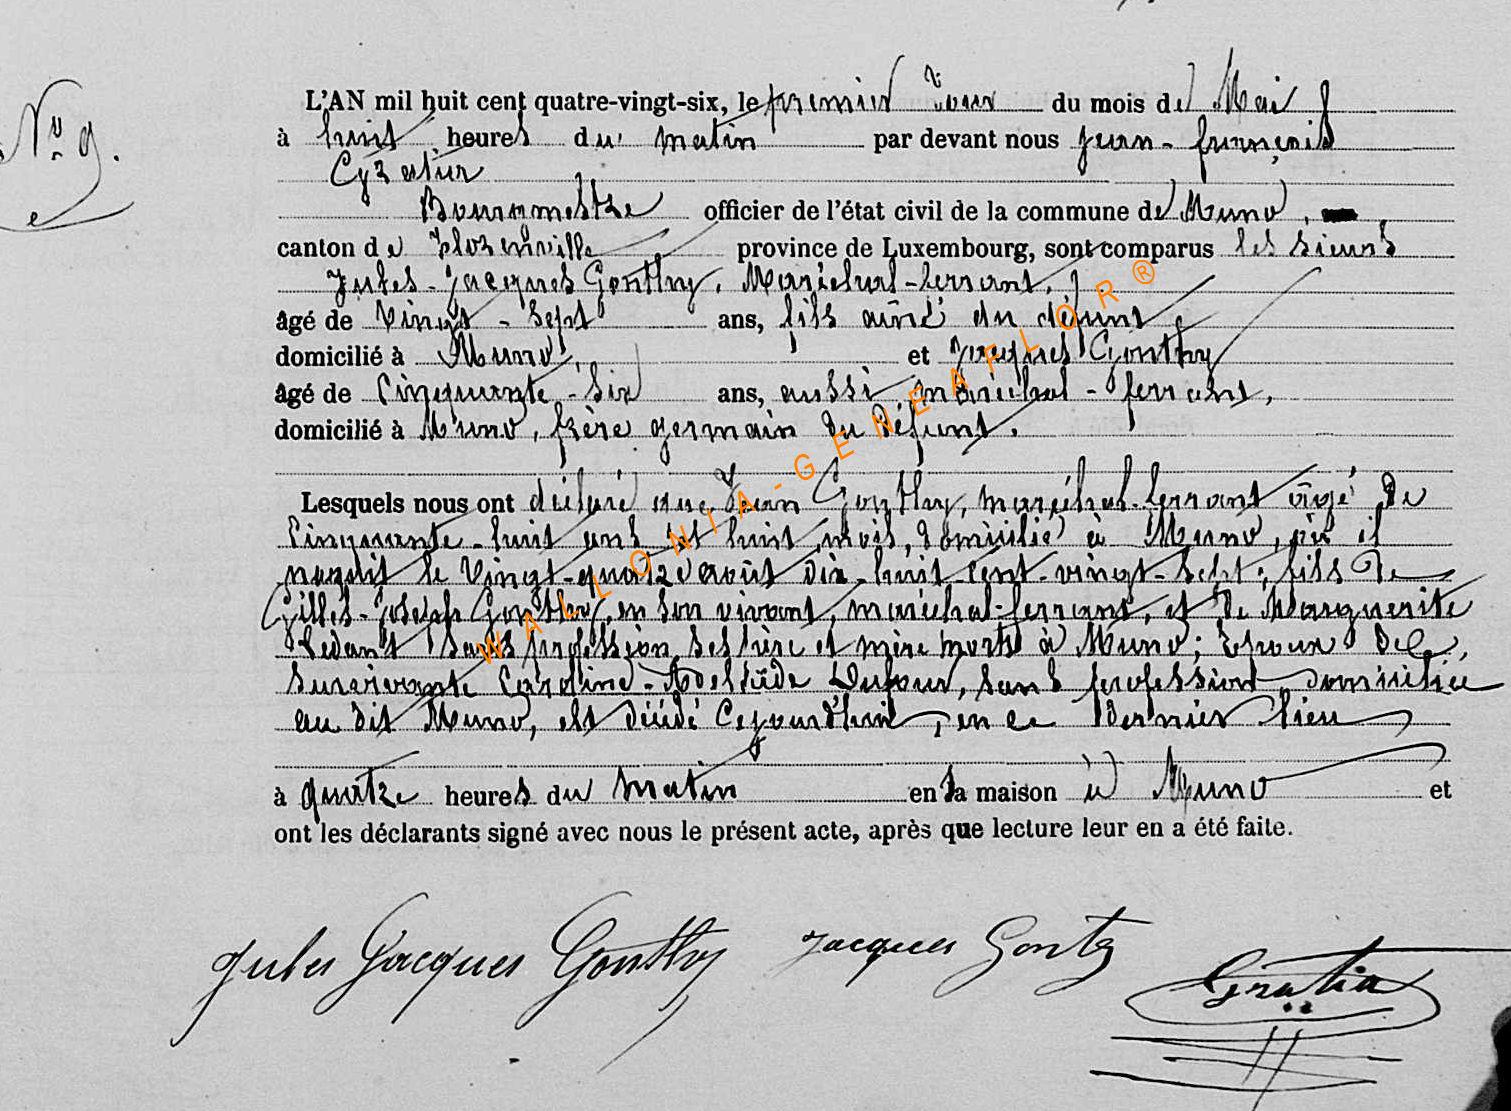 N° 9.
L'AN mil huit cent quatre-vingt-six, le premier jour du mois de Mai
à huit heures du matin par devant nous Jean-françois
Bourgmestre officier de l'état civil de la commune de Muno,
canton de Florenville province de Luxembourg, sont comparus les sieurs
Jules-Jacques Gonthy, Maréchal-ferrant,
âgé de Vingt-sept ans, fils aîné du défunt,
domicilié à Muno, et Jacques Gonthy
âgé de Cinquante-six ans, aussi maréchal-ferrant,
domicilié à Muno, frère germain du défunt.
Lesquels nous ont déclaré que Jean Gonthy, maréchal-ferrant âgé de
Cinquante-huit ans et huit mois, domicilié à Muno, où il
naquit le Vingt-quatre août dix-huit-cent-vingt-sept; fils de
Gilles-Joseph Gonthy, en son vivant, maréchal-ferrant, et de Marguerite
Ledant sans profession ses père et mère morts à Muno; Epoux de la
Survivante Caroline-Adelaïde Dufour, sans profession domiciliée
au dit Muno, est décédé Cejourd'hui, en ce dernier lieu
à quatre heures du matin en sa maison à Muno et
ont les déclarants signé avec nous le présent acte, après que lecture leur en a été faite.
Jules Jacques Gonthy Jacques Gonty
WALLONIA-GENEAFLOR®